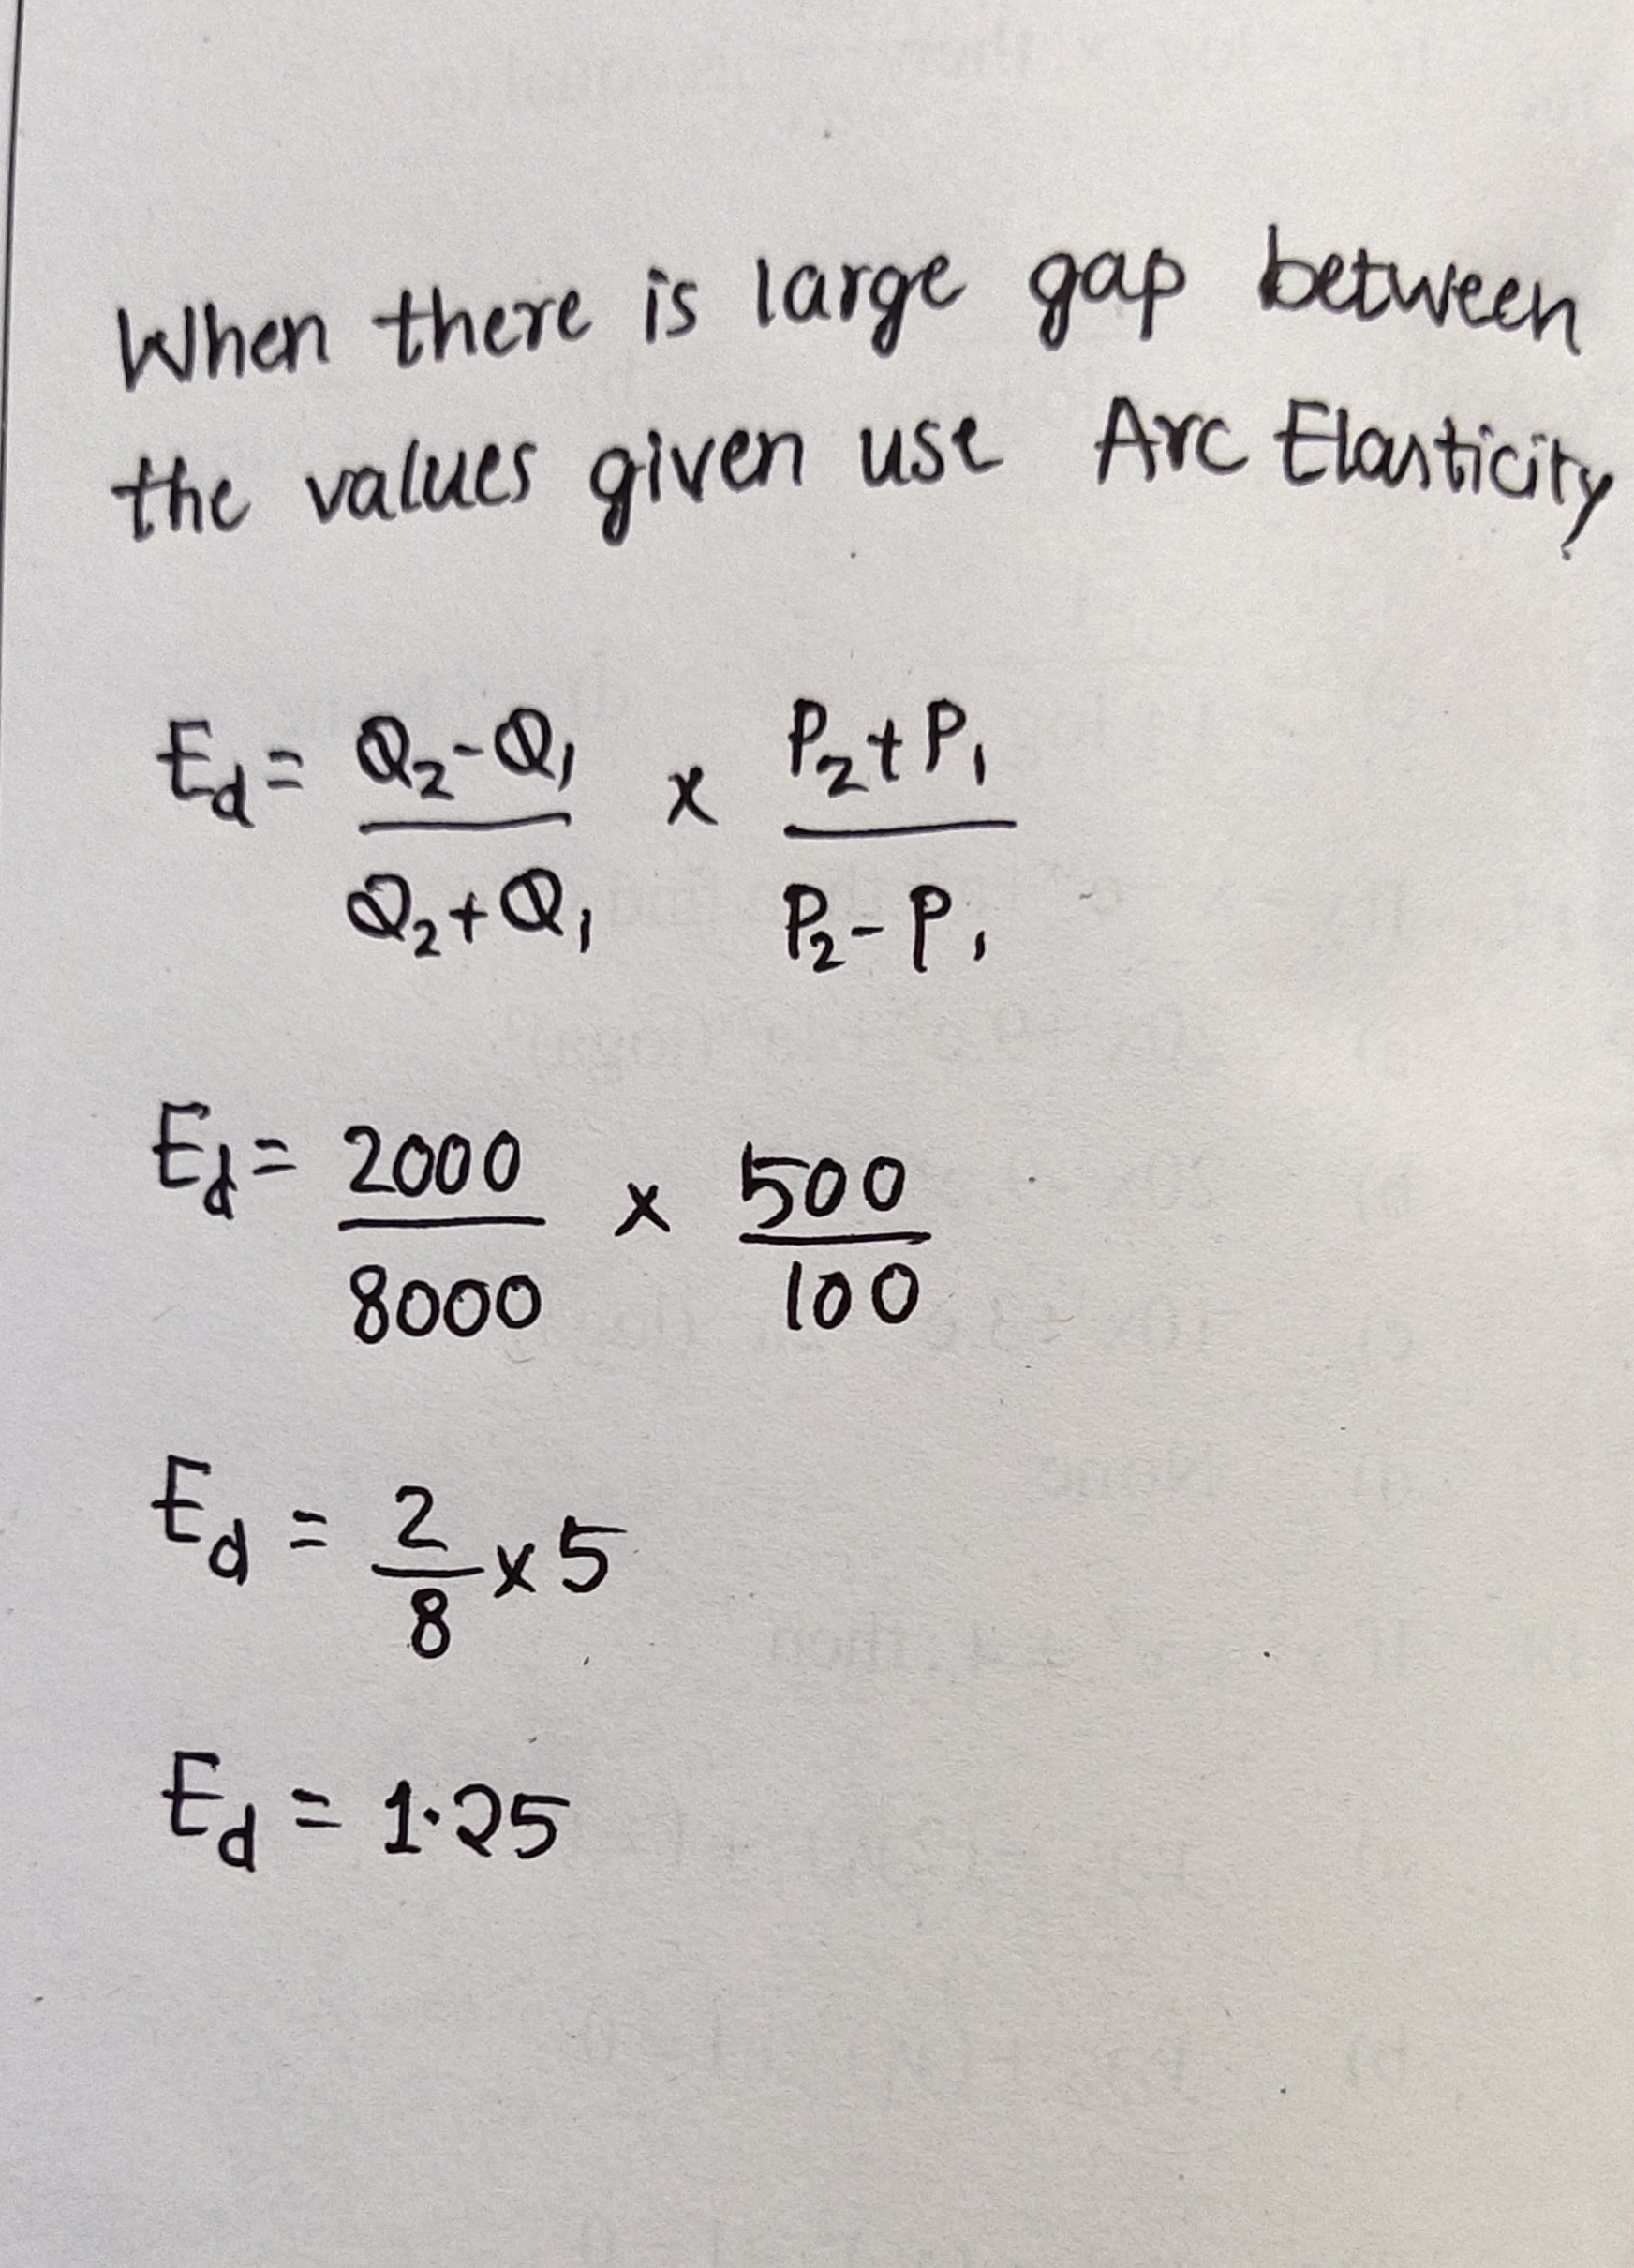 When there is large gap between
the values given use Arc Elasticity
Ed = Q2-Q1 / Q2+Q1 x P2+P1 / P2-P1
Ed = 2000 / 8000 x 500 / 100
Ed = 2 / 8 x 5
Ed = 1.25